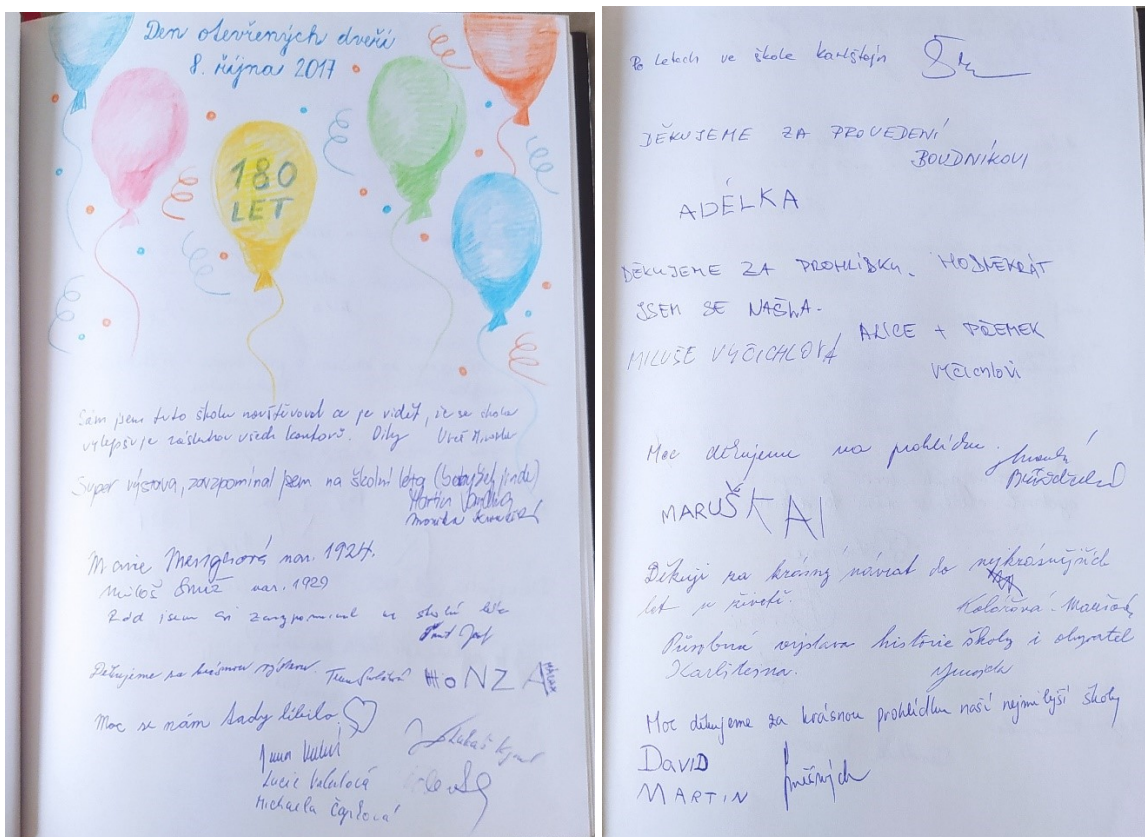 Den otevřených dveří
8. října 2017
180
LET
Sám jsem tuto školu navštěvoval a je vidět, že se škola
vylepšuje zásluhou všech kantorů. Díky
Super výstava, zavzpomínal jsem na školní léta (
Martin
Monika
Marie nar. 1924.
Miloš nar. 1929
Rád jsem si zavzpomínal na školní léta
Děkujeme za krásnou výstavu. HONZA
Moc se nám tady líbilo.
Lucie
Michaela
Po letech ve škole Karlštejn
DĚKUJEME ZA PROVEDENÍ
BOUDNÍKOVI
ADÉLKA
DĚKUJEME ZA PROHLÍDKU. MODNEKRÁT
JSEM SE NAŠLA.
MILUŠE VYČICHLOVÁ
ALICE + PŘEMEK
VYČICHLOVI
Moc děkujeme za prohlídku.
MARUŠKA
Děkuji za krásný návrat do nejkrásnějších
let v životě.
Kolářová
Působivá výstava historie školy i obyvatel
Karlštejna.
Moc děkujeme za krásnou prohlídku naší nejmilejší školy
DAVID
MARTIN